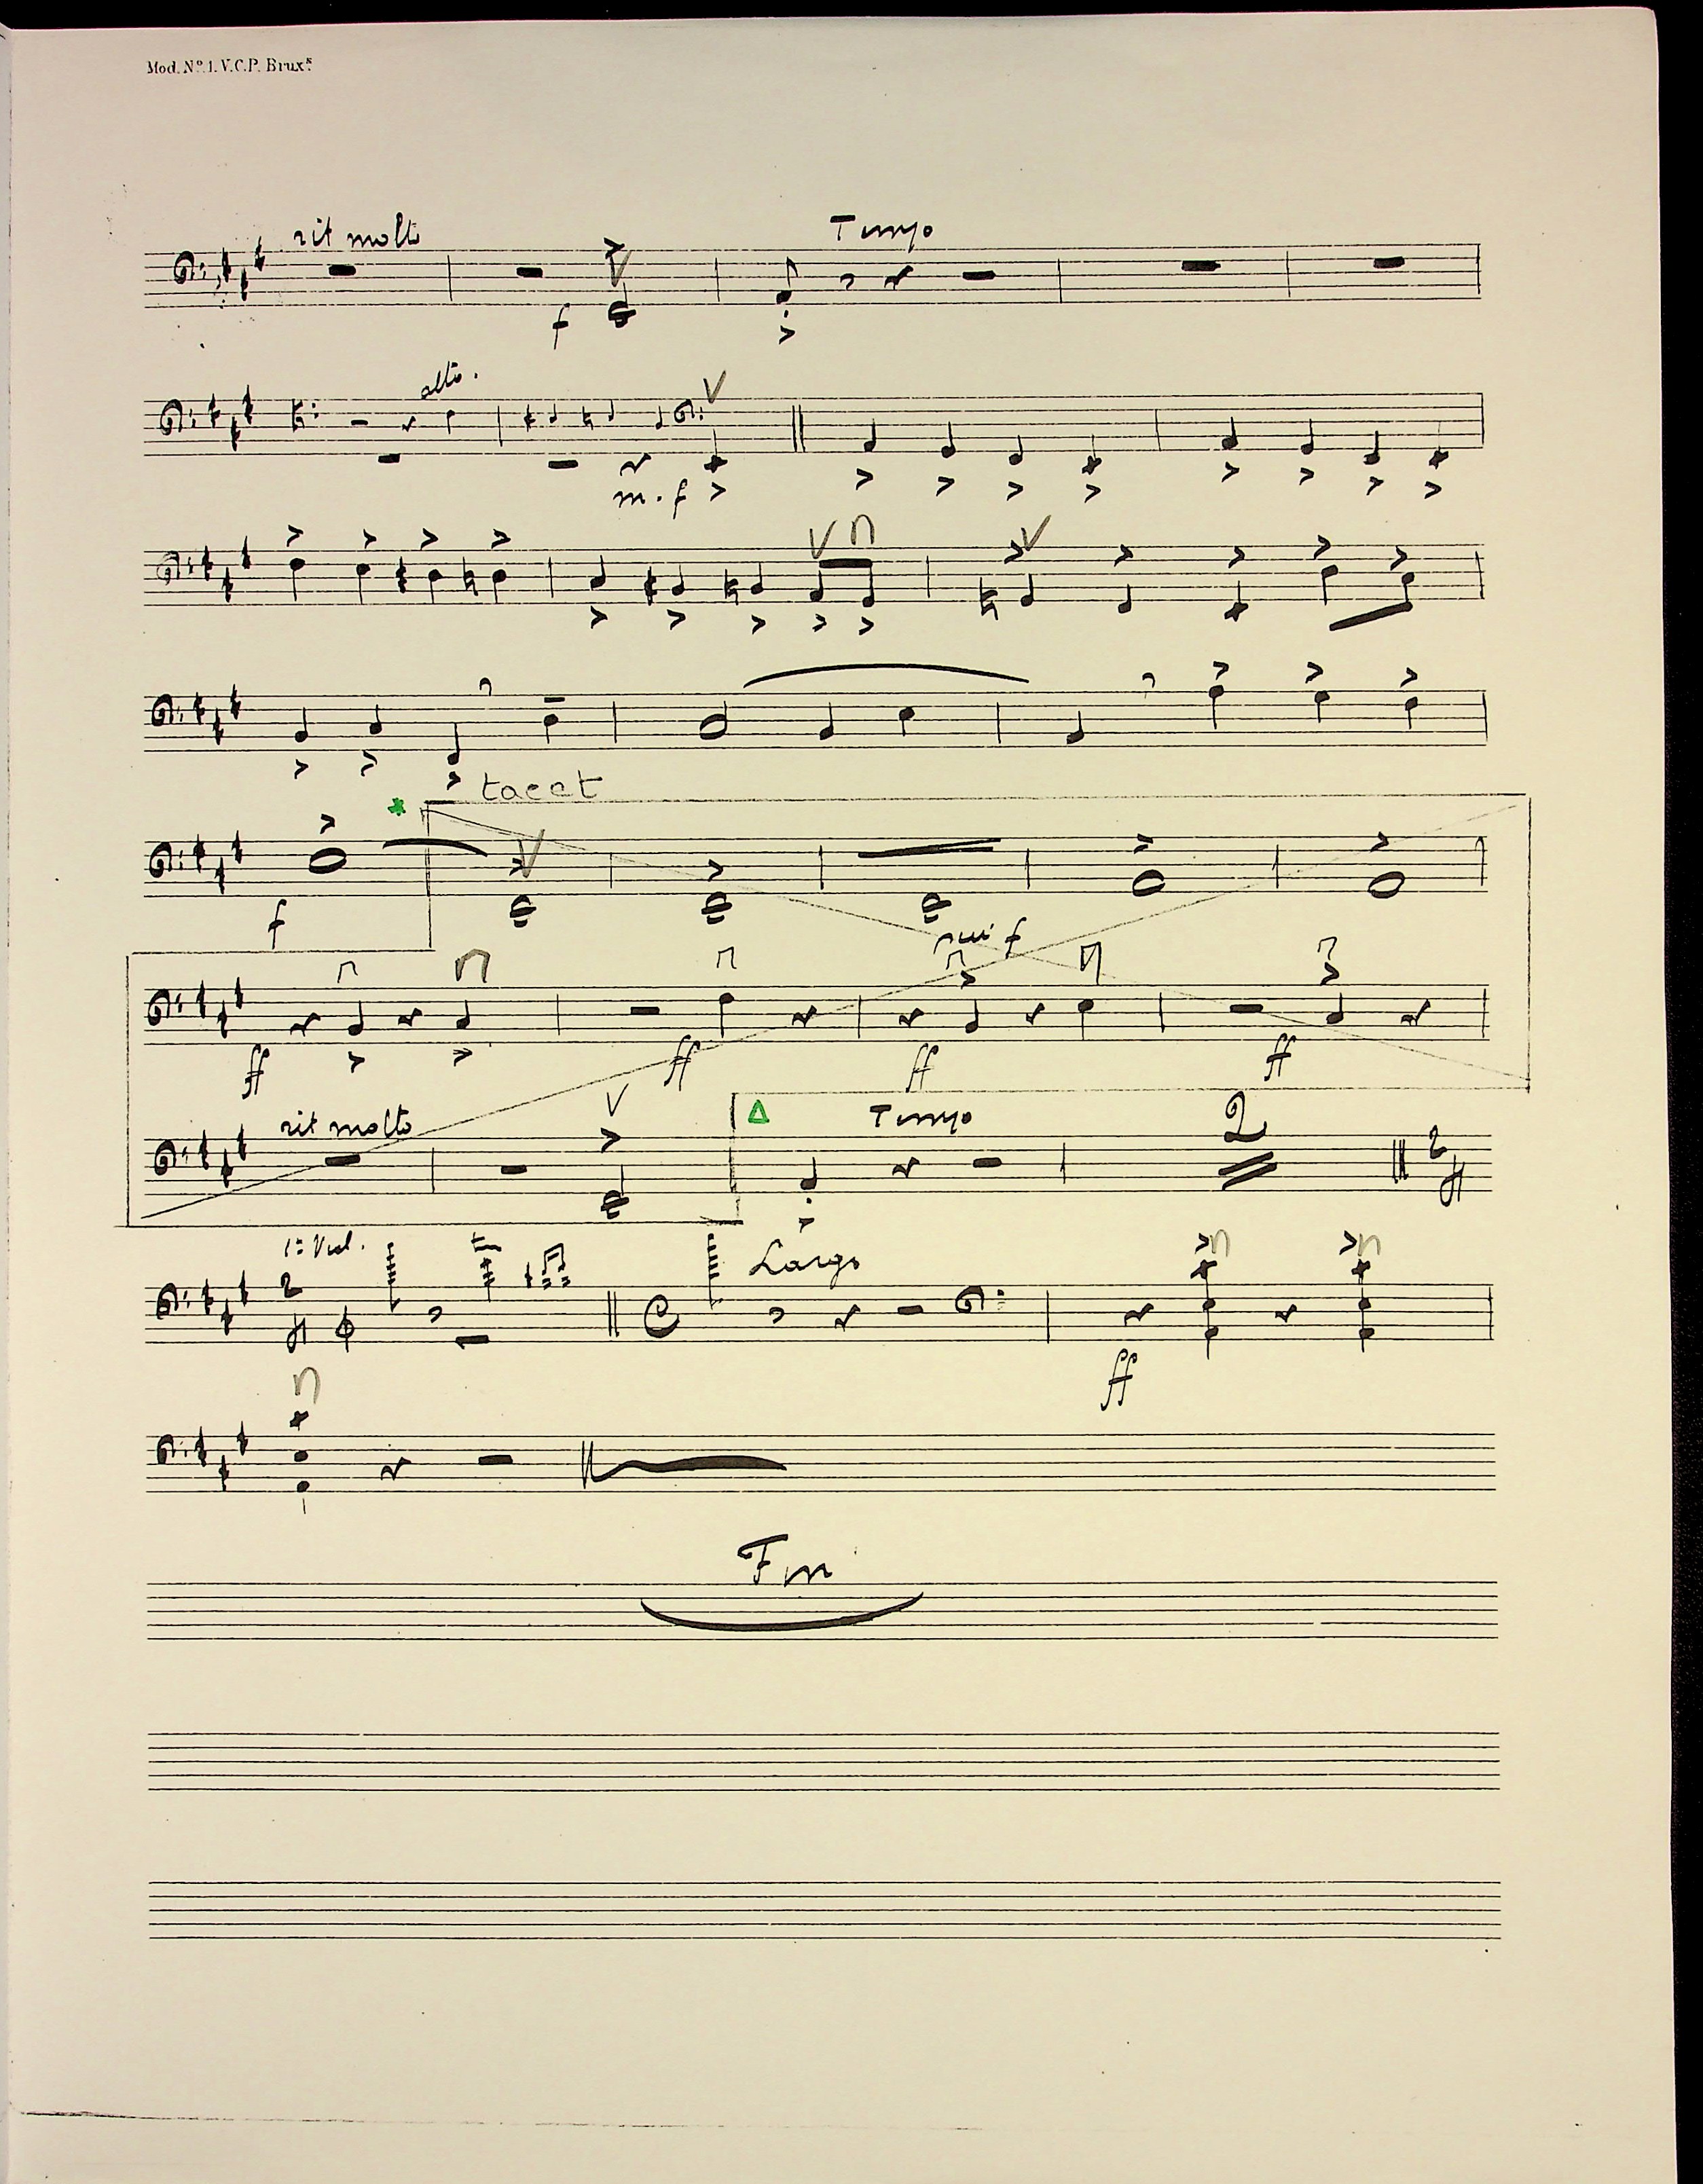 Mod. Nº.1. V.C.P. Bruxˢ
rit molto Tempo
f
alto.
m.f
tacet
f
f
ff ff ff ff
rit molto Tempo
2 2
1º Viol. Largo
2
ff
Fin